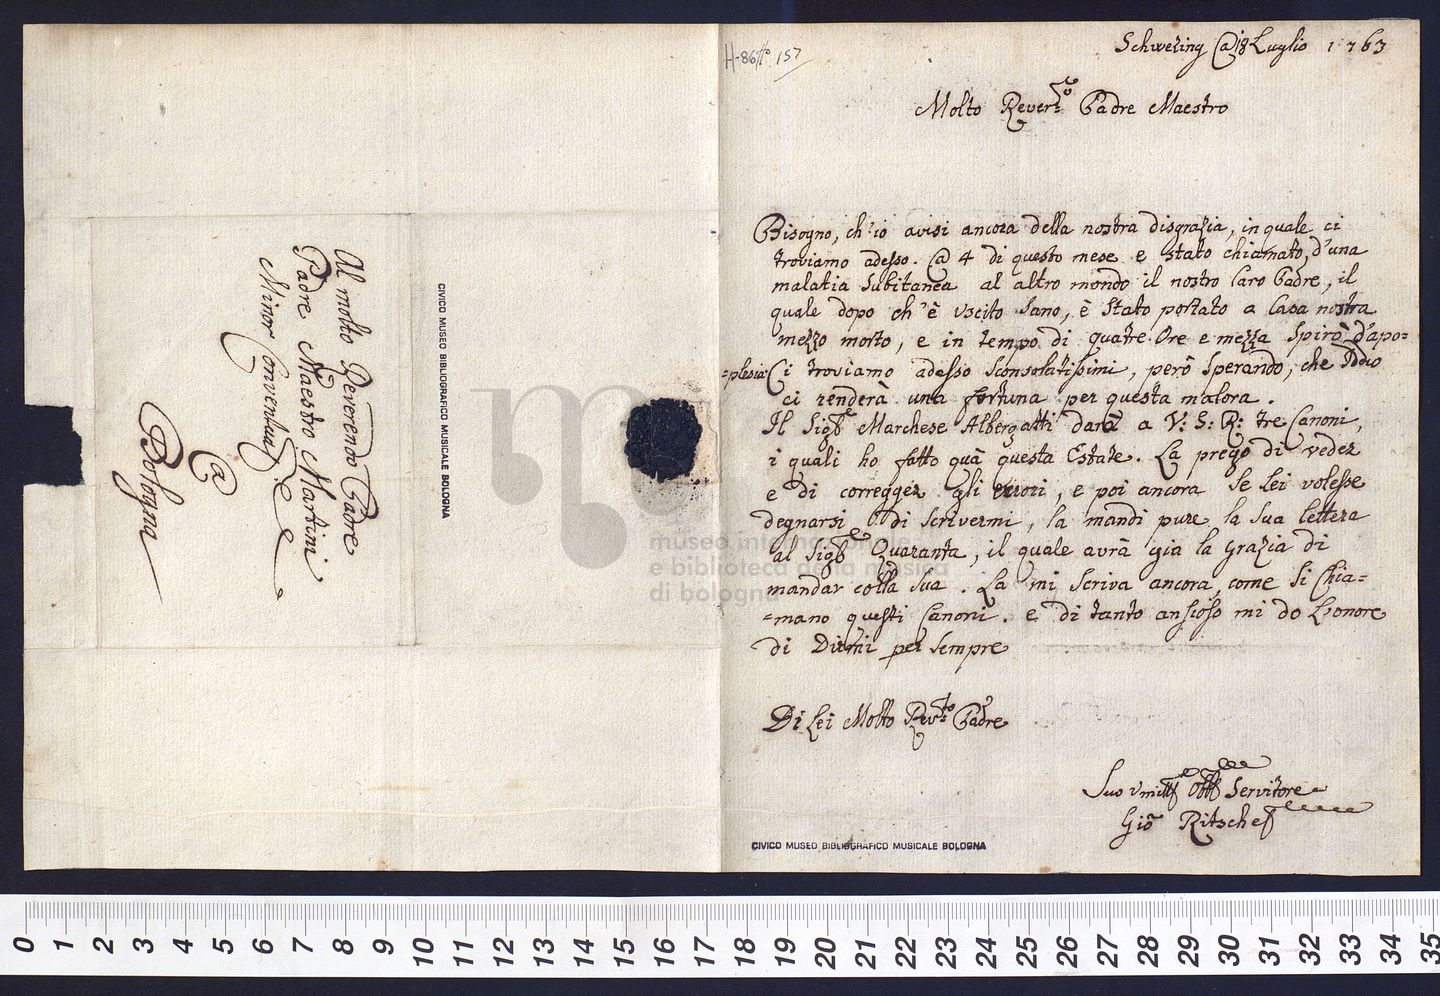 Al molto Reverendo Padre
Padre Maestro Martini
Minor Conventuale
@
Bologna
CIVICO MUSEO BIBLIOGRAFICO MUSICALE BOLOGNA
H-86 157
Schwezing @ 18 Luglio 1763
Molto Rever:do Padre Maestro
Bisogno, ch'io avisi ancora della nostra disgrazia, in quale ci
troviamo adesso. @ 4 di questo mese e stato chiamato, d'una
malatia subitanea al altro mondo il nostro Caro Padre, il
quale dopo ch'è uscito sano, è stato portato a Casa nostra
mezzo morto, e in tempo di quatre Ore e mezza spirò d'apo=
=plesia: Ci troviamo adesso sconsolatissimi, però sperando, che Iddio
ci renderà una fortuna per questa malora.
Il Sigre Marchese Albergatti darà a V: S: R: tre Canoni,
i quali ho fatto quà questa Estate. La prego di veder
e di corregger gli errori, e poi ancora se lei volesse
degnarsi di scrivermi, la mandi pure la sua lettera
al Sigre Quaranta, il quale avrà gia la grazia di
mandar colla sua. La mi scriva ancora, come si chia=
=mano questi Canoni. e di tanto ansioso mi do l'onore
di Dirmi per sempre
Di Lei Molto Rev:do Padre
Suo Servitore
Gio Ritschel
CIVICO MUSEO BIBLIOGRAFICO MUSICALE BOLOGNA
museo internazionale
e biblioteca della musica
di bologna
0 1 2 3 4 5 6 7 8 9 10 11 12 13 14 15 16 17 18 19 20 21 22 23 24 25 26 27 28 29 30 31 32 33 34 35